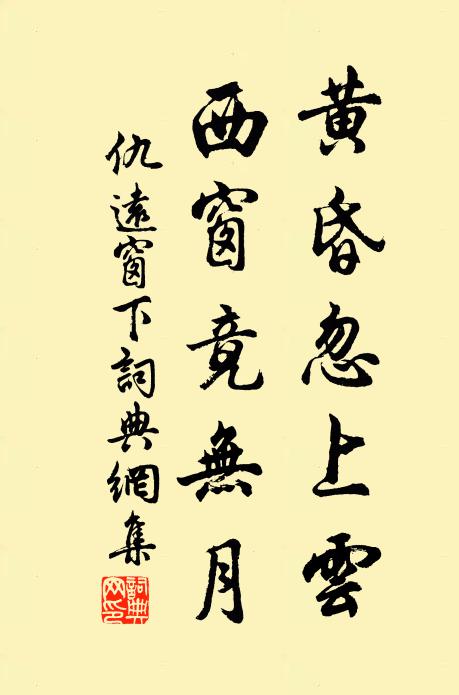 黄昏忽上雲
西窗竟無月
仇遠窗下詞典網集
詞典網印